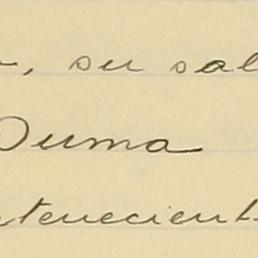 , su sal
Duma
tenecient